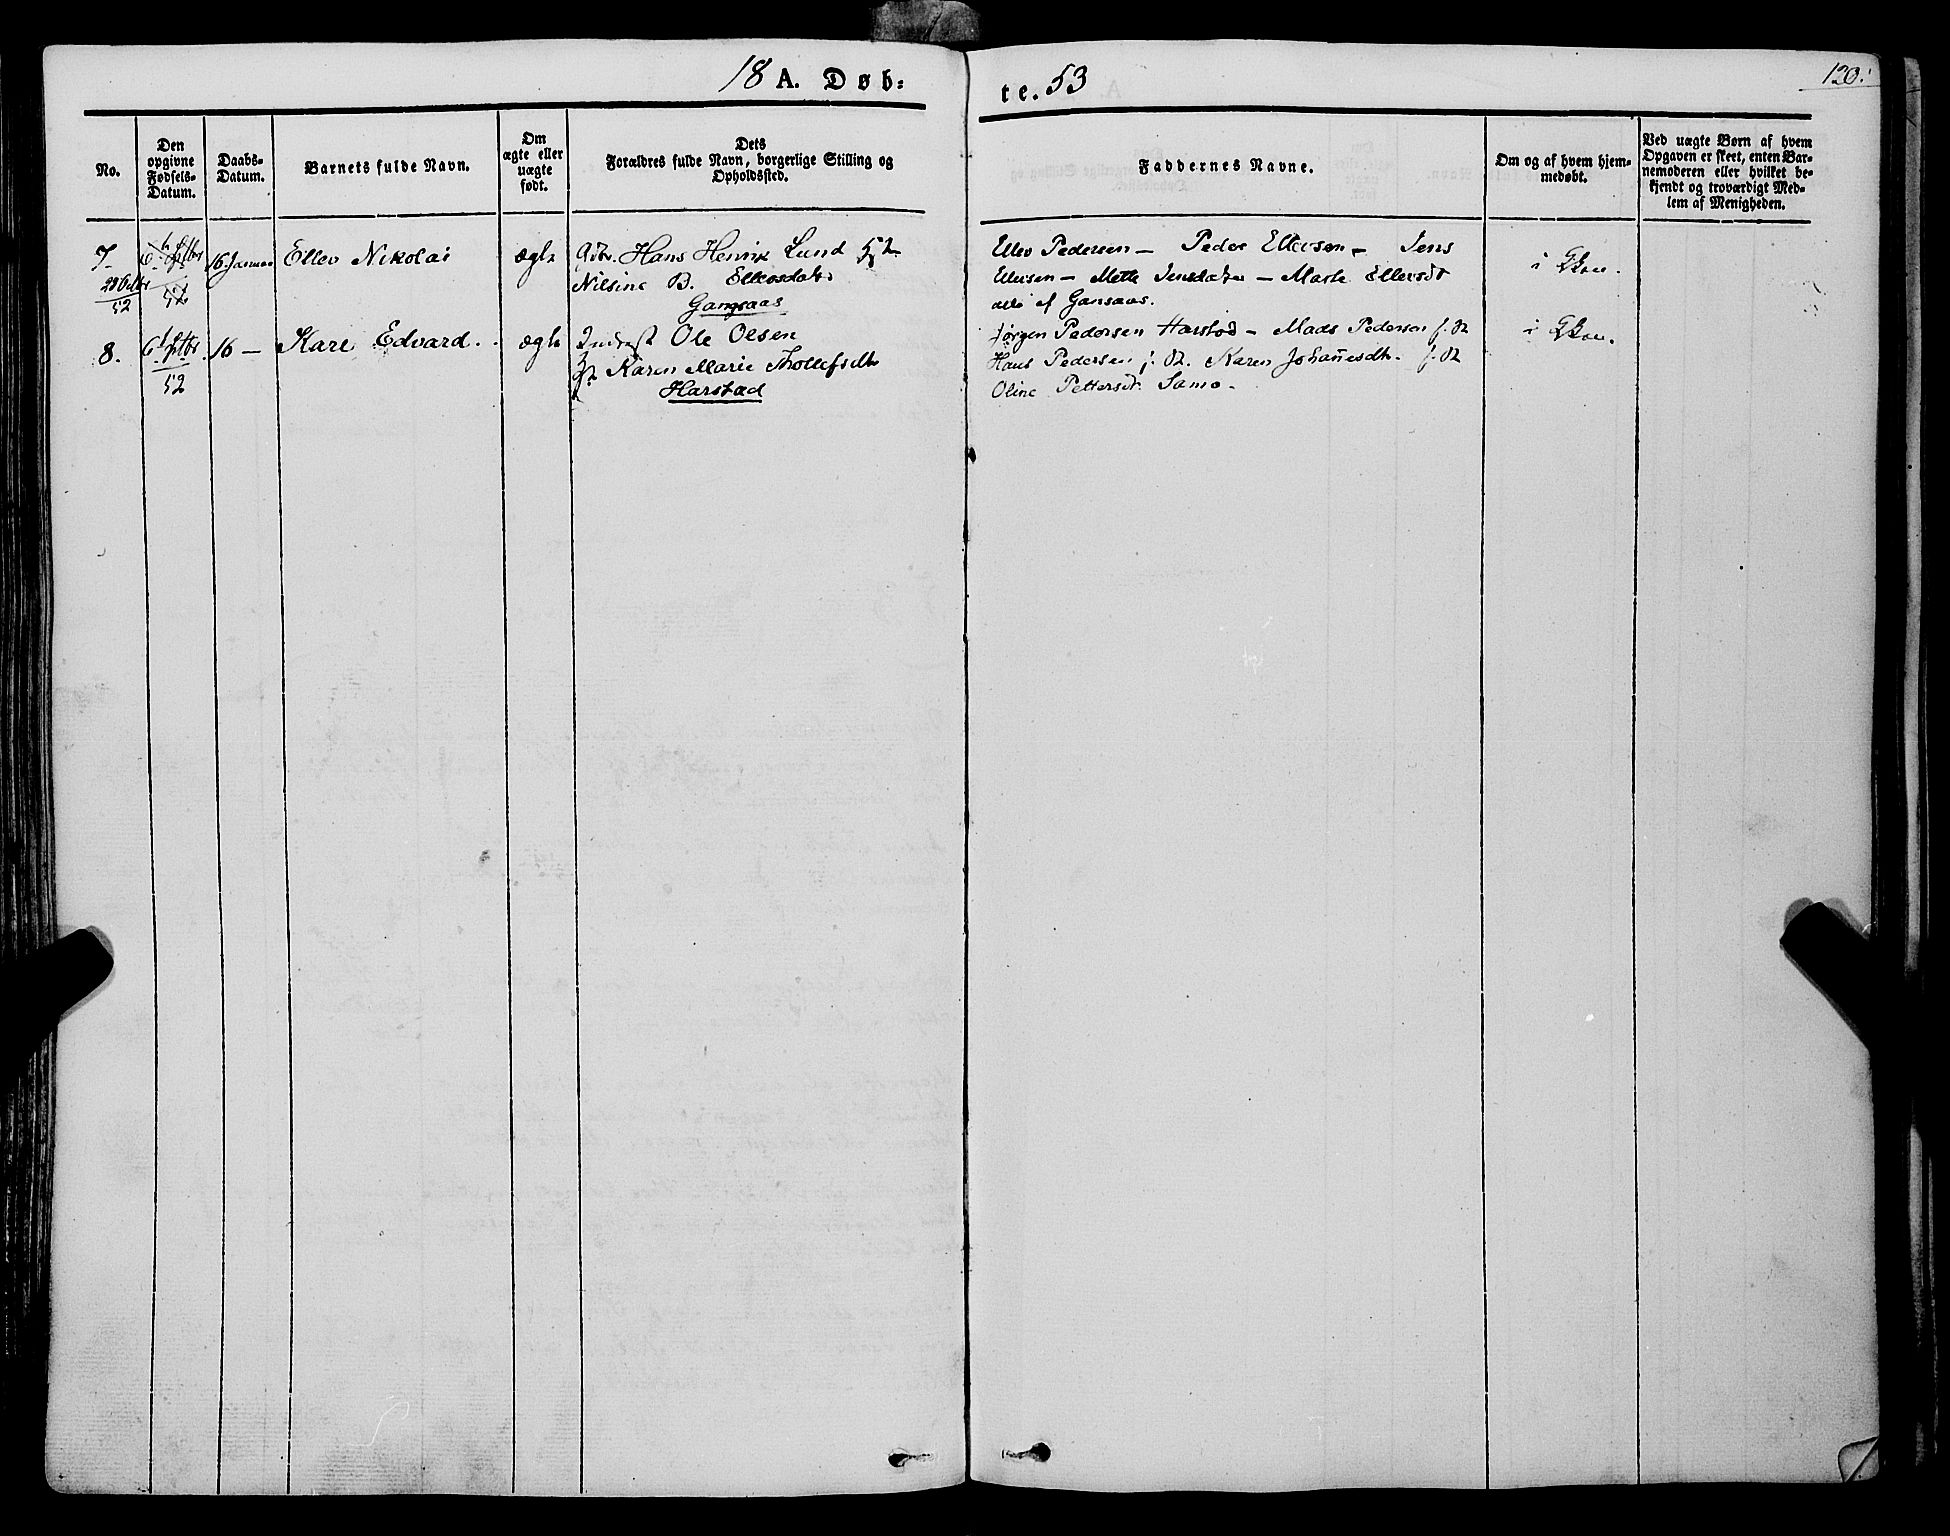 18 A. Døb=
te. 53
120.
No.
Den
opgivne
Fødsels-
Datum.
Daabs-
Datum.
Barnets fulde Navn.
Om
ægte eller
uægte
født.
Dets
Forældres fulde Navn, borgerlige Stilling og
Opholdssted.
Faddernes Navne.
Om og af hvem hjem-
medøbt.
Ved uægte Børn af hvem
Opgaven er skeet, enten Bar-
nemoderen eller hvilket be-
kjendt og troværdigt Med-
lem af Menigheden.
7.
52
52
16 Januar
Ellev Nikolai
ægte
Hans Henrik Lund
Nilsine B. Ellevsdatr
Gangsaas
Ellev Pedersen — Peder Ellevsen — Jens
Ellevsen — Mette Jensdater — Marte Ellevsdt
alle af Gansaas.
i
8.
6
52
16 —
Kare Edvard.
ægte
Inderst Ole Olsen
Karen Marie Thollefsdt
Harstad
Jørgen Pedersen Harstad — Mads Pedersen
Hans Pedersen Karen Johanesdt.
Oline Pettersdt. Samo.
i